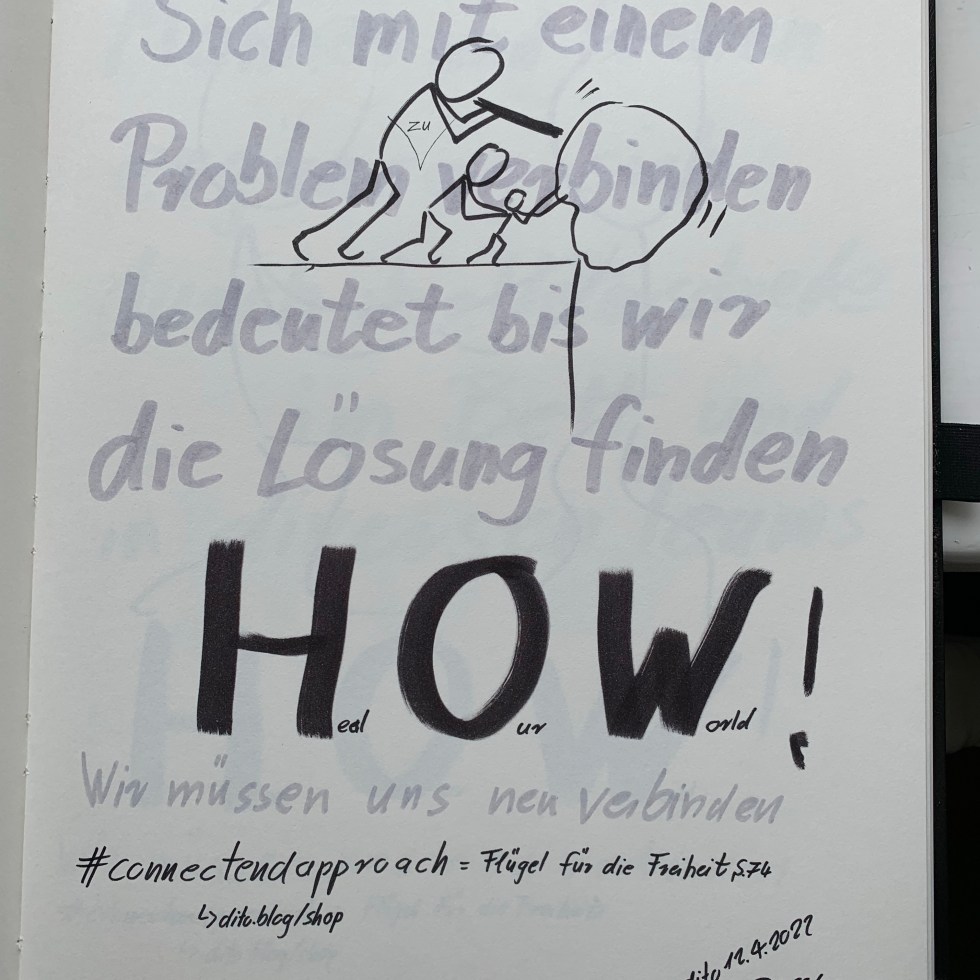 Sich mit einem
zu
Problem verbinden
bedeutet bis wir
die Lösung finden
HOW!
Heal Our World
Wir müssen uns neu verbinden
#connectendapproach = Flügel für die Freiheit, S.74
↳dito.blog/shop
dito 12.4.2022